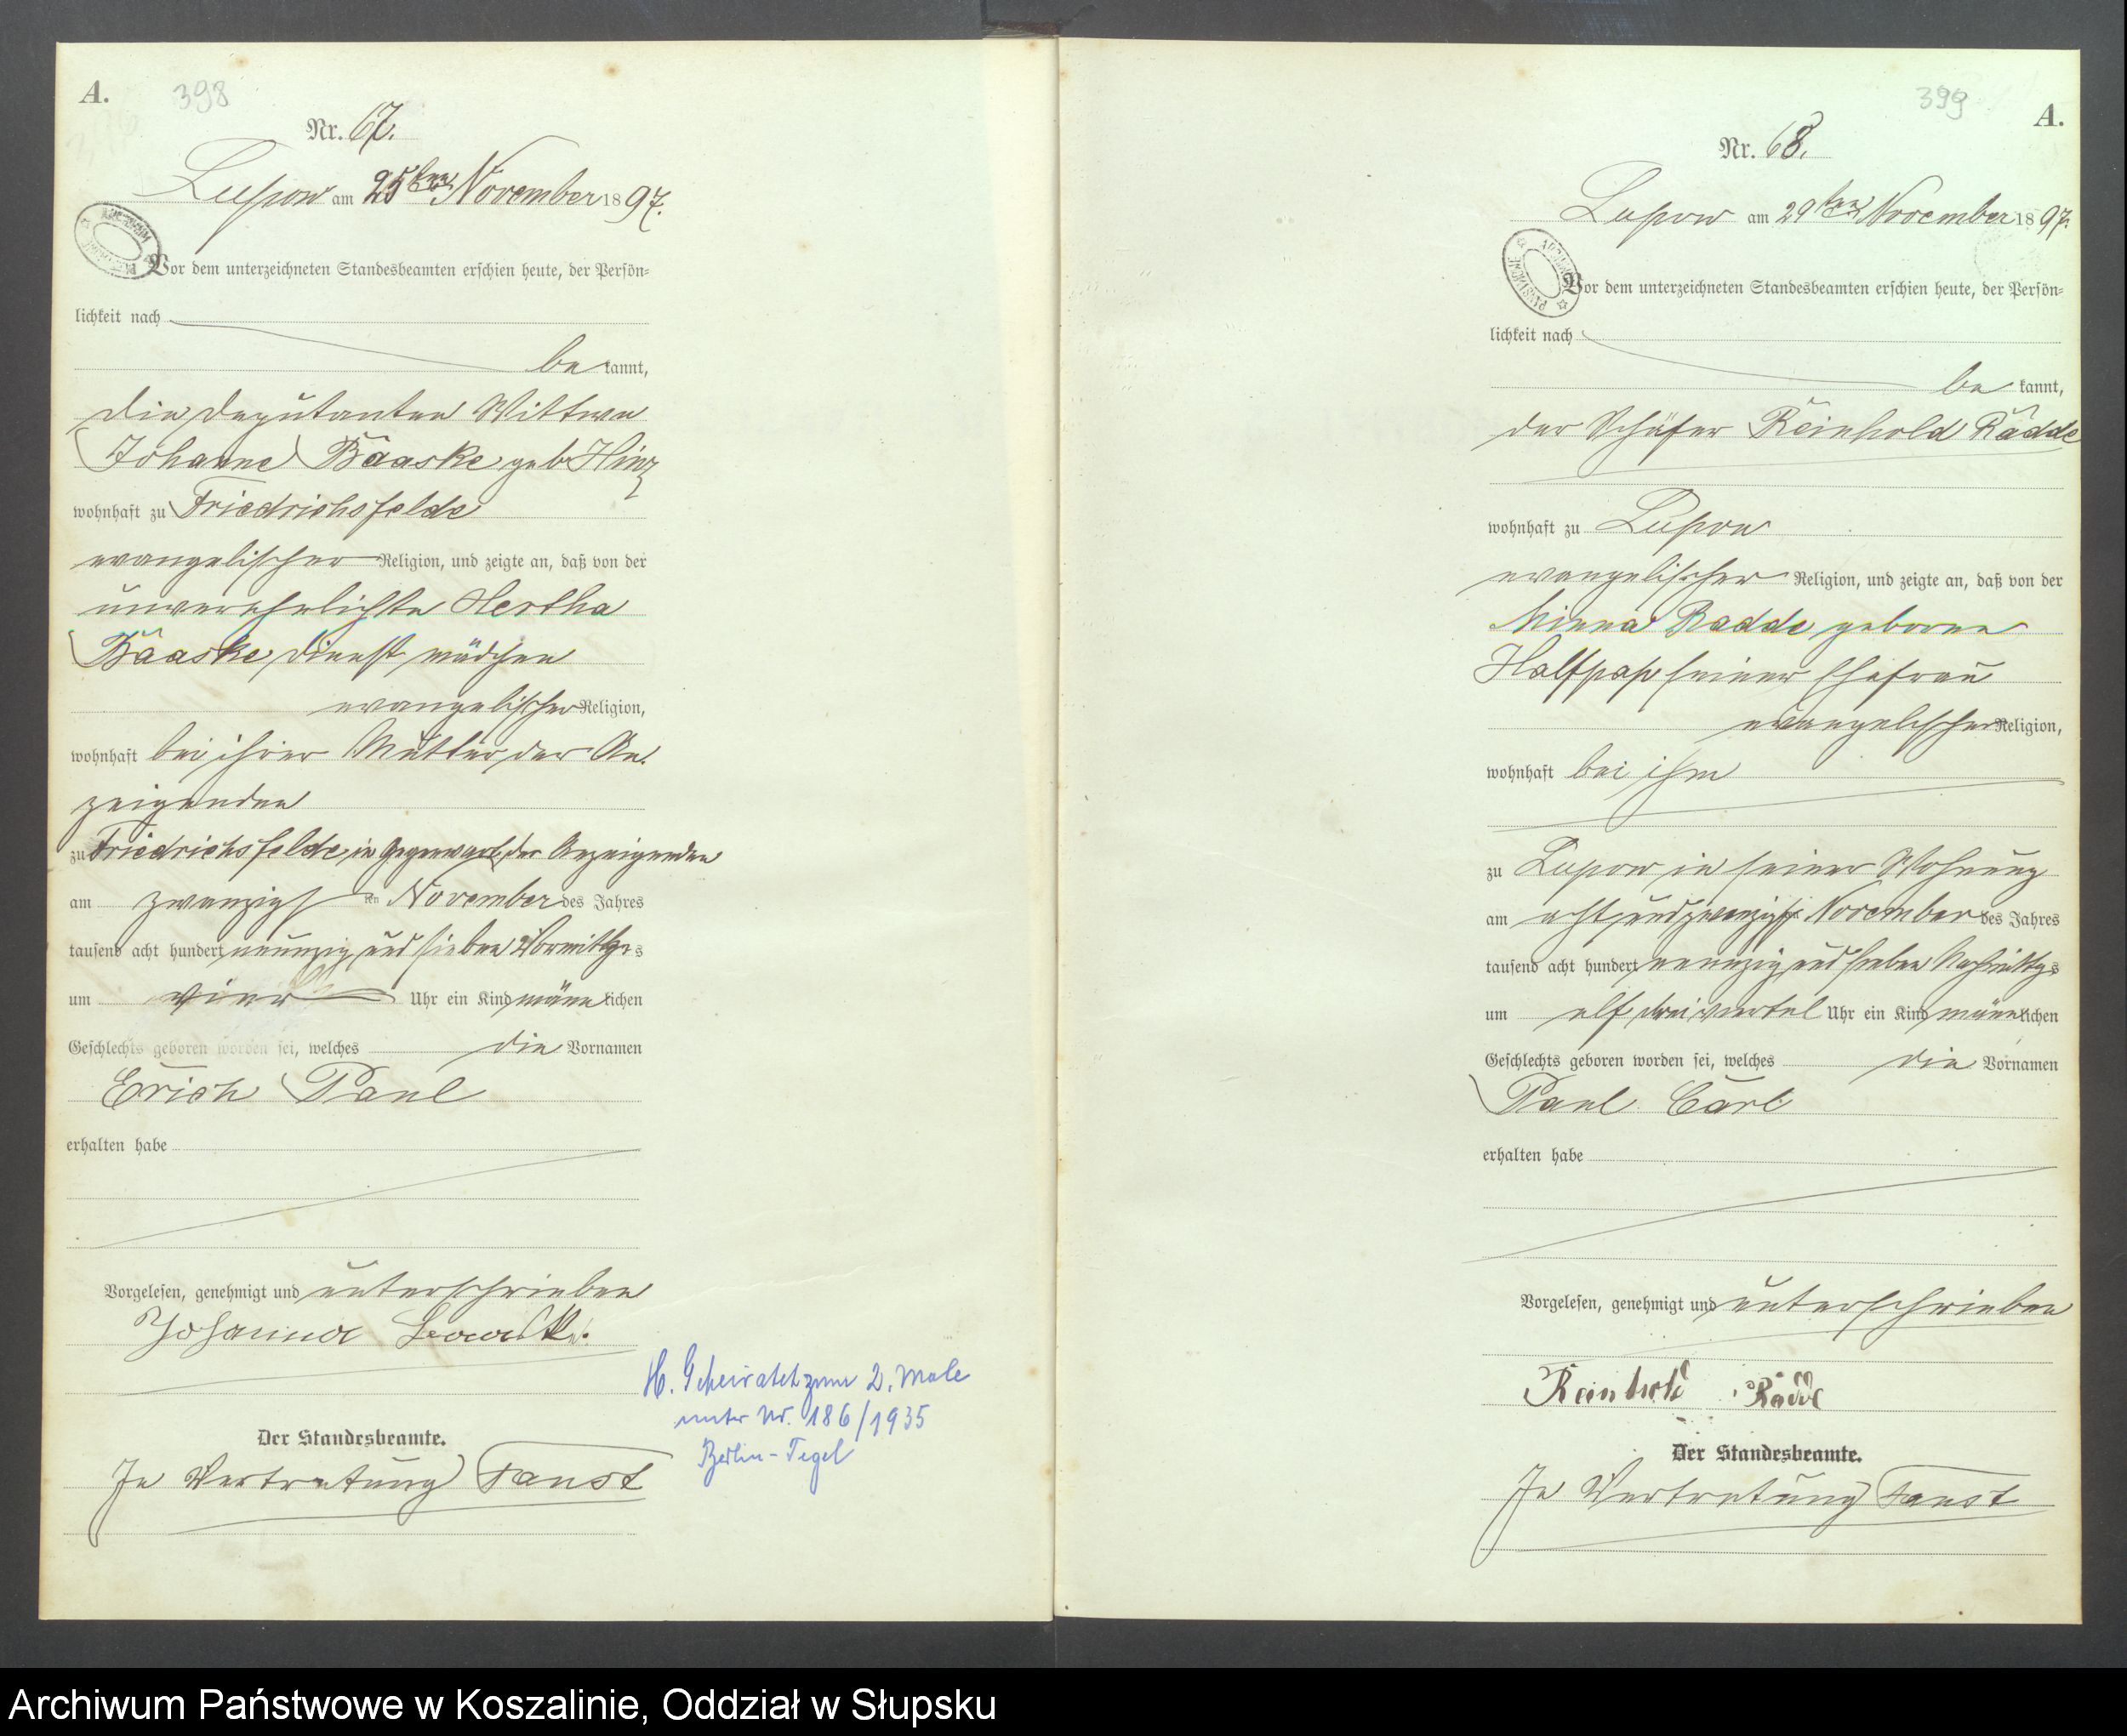 A.
398
Nr. 67.
Lupow am 25ten November 1897.
Vor dem unterzeichneten Standesbeamten erschien heute, der Persön=
lichkeit nach
be kannt,
die Deputanten Wittwe
Johanne Baaske geb Hinz
wohnhaft zu Friedrichsfelde
evangelischer Religion, und zeigte an, daß von der
unverehelichte Hertha
Baaske, Dienstmädchen
evangelischer Religion,
wohnhaft bei ihrer Mutter, der An=
zeigenden
zu Friedrichsfelde, in Gegenwart der Anzeigenden
am zwanzigsten November des Jahres
tausend acht hundert neunzig und sieben Vormittags
um vier Uhr ein Kind männlichen
Geschlechts geboren worden sei, welches die Vornamen
Erich Paul
erhalten habe
Vorgelesen, genehmigt und unterschrieben
Johanna
H. Geheiratet zum 2. Male
unter Nr. 186/1935
Berlin-Tegel
Der Standesbeamte.
In Vertretung Faust
399
A.
Nr. 68.
Lupow am 29ten November 1897.
Vor dem unterzeichneten Standesbeamten erschien heute, der Persön=
lichkeit nach
be kannt,
der Schäfer Reinhold Radde
wohnhaft zu Lupow
evangelischer Religion, und zeigte an, daß von der
Minna Radde geborne
Halfpap seiner Ehefrau
evangelischer Religion,
wohnhaft bei ihm
zu Lupow in seiner Wohnung
am acht und zwanzigsten November des Jahres
tausend acht hundert neunzig und sieben Nachmittags
um elf dreiviertel Uhr ein Kind männlichen
Geschlechts geboren worden sei, welches die Vornamen
Paul Carl
erhalten habe
Vorgelesen, genehmigt und unterschrieben
Reinhold Radde
Der Standesbeamte.
In Vertretung Faust
Archiwum Państwowe w Koszalinie, Oddział w Słupsku